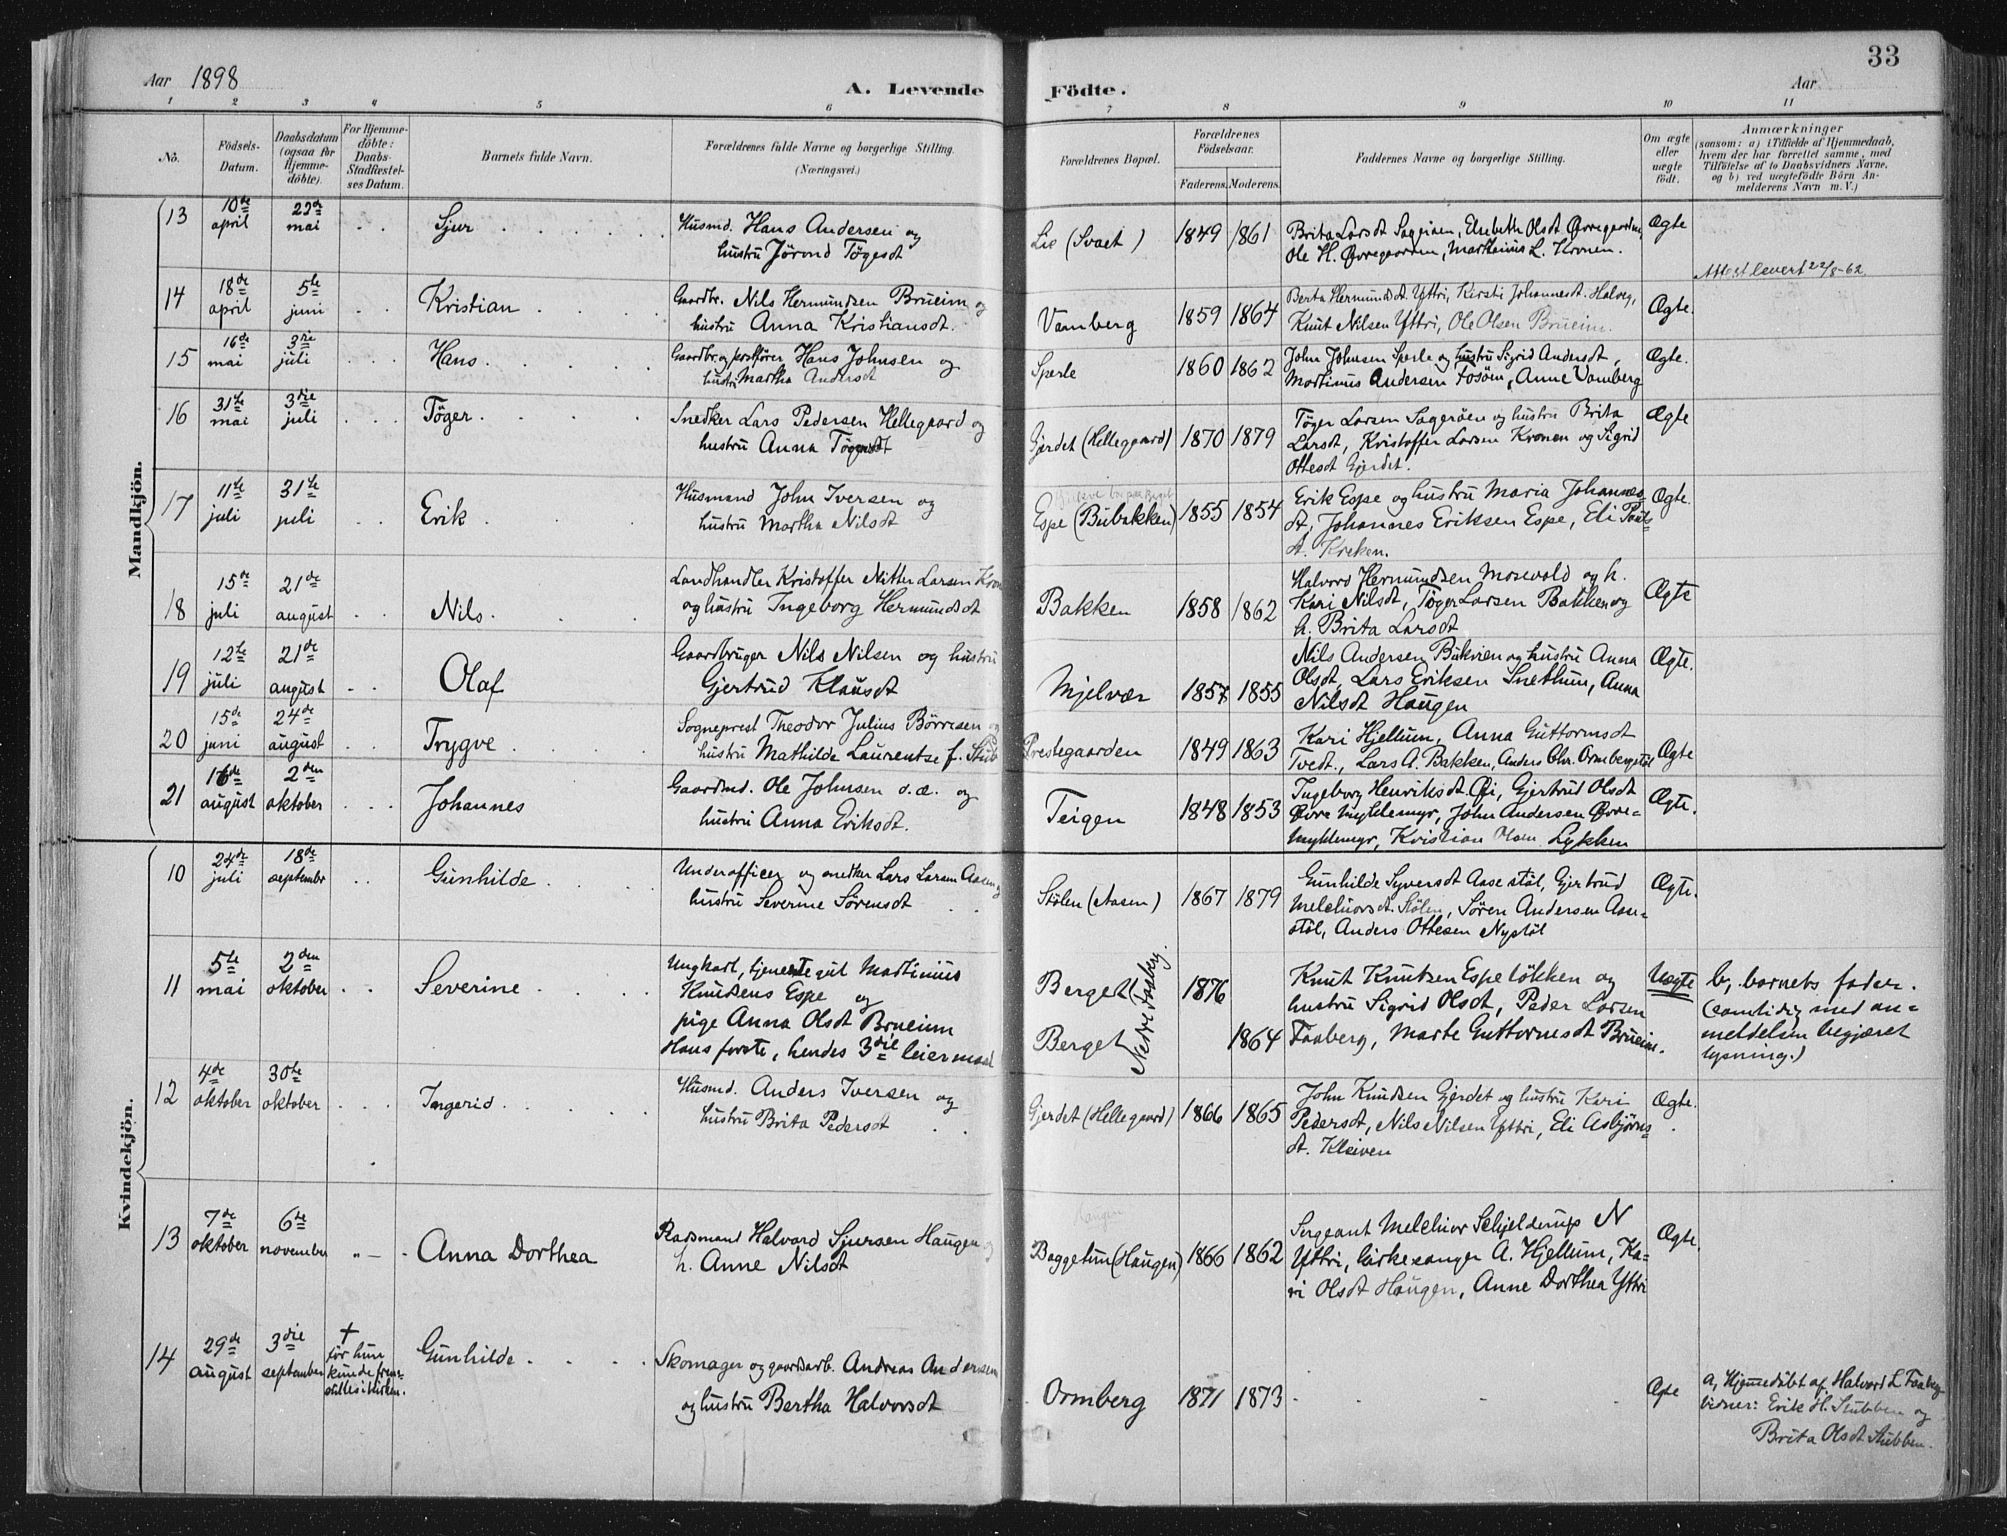 33
Aar 1898
A. Levende Födte.
Aar
1 2 3 4 5 6 7 8 9 10 11
No.
Födsels-Datum.
Daabsdatum (ogsaa for Hjemme-döbte).
For Hjemme-döbte: Daabs-Stadfæstel-ses Datum.
Barnets fulde Navn.
Forældrenes fulde Navne og borgerlige Stilling. (Næringsvei.)
Forældrenes Bopæl.
Forældrenes Födselsaar.
Faderens. Moderens.
Faddernes Navne og borgerlige Stilling.
Om ægte eller uægte födt.
Anmærkninger
(saasom: a) i Tilfælde af Hjemmedaab,
hvem der har forrettet samme, med
Tilföielse af to Daabsvidners Navne,
og b) ved uægtefödte Börn An-
melderens Navn m. V.)
Mandkjön.
13 10de april 22de mai Sjur
Husmd. Hans Andersen og
hustru Jörond Tögesdt
Lie (Svaet) 1849 1861
Brita Larsdt Sageröen, Elsebeth Olsdt Övregaarden,
Ole H. Övregaarden, Marthinus L. Kronen.
Ægte
Attest levert 22/8-62.
14 18de april 5te juni Kristian
Gaardbr. Nils Hermundsen Brueim og
hustru Anna Kristiansdt.
Vamberg 1859 1864
Berta Hermundsdt. Yttri, Kirsti Johannesdt. Halveg,
Knut Nilsen Yttri, Ole Olsen Brueim.
Ægte.
15 16de mai 3die juli Hans
Gaardbr. og postförer Hans Johnsen og
hustru Martha Andersdt
Sperle 1860 1862
John Johnsen Sperle og hustru Sigrid Andersdt,
Martinus Andersen Fosöen, Anne Vamberg
Ægte.
16 31te mai 3die juli Töger
Snedker Lars Pedersen Hellegaard og
hustru Anna Tögersdt
Gjerdet (Hellegaard) 1870 1879
Töger Larsen Sageröen og hustru Brita
Larsdt, Kristoffer Larsen Kronen og Sigrid
Ottesdt Gjerdet.
Ægte
17 11te juli 31te juli Erik
Husmand John Iversen og
hustru Martha Nilsdt
Espe (Bubakken) 1855 1854
Erik Espe og hustru Maria Johannes-
dt, Johannes Eriksen Espe, Eli Pauls-
dt. Kreken.
Ægte.
18 15de juli 21de august Nils.
Landhandler Kristoffer Nitter Larsen Kron
og hustru Ingeborg Hermundsdt
Bakken 1858 1862
Halvord Hermundsen Mosevold og h.
Kari Nilsdt, Töger Larsen Bakken og
h. Brita Larsdt
Ægte
19 12te juli 21de august Olaf
Gaardbruger Nils Nilsen og hustru
Gjertrud Klausdt
Mjelvær 1857 1855
Nils Andersen Bukvien og hustru Anna
Olsdt, Lars Eriksen Snethun, Anna
Nilsdt Haugen
Ægte.
20 15de juni 24de august Trygve
Sogneprest Theodor Julius Börresen og
hustru Mathilde Laurentse f. Stub
Prestegaarden 1849 1863
Kari Hjellum, Anna Guttormsdt
Tvedt, Lars A. Bakken, Anders Chr. Ormbergstöl
Ægte
21 16de august 2den oktober Johannes
Gaardmd. Ole Johnsen d.æ. og
hustru Anna Eriksdt.
Teigen 1848 1853
Ingeborg Henriksdt. Öi, Gjertrud Olsdt
Övre Myklemyr, John Andersen Övre-
Myklemyr, Kristian Lykken
Ægte.
Kvindekjön.
10 24de juli 18de septembr Gunhilde
Underofficer og snedker Lars Larsen Aasen og
hustru Severine Sörensdt
Stölen (Aasen) 1867 1879
Gunhilde Syversdt Aasestöl, Gjertrud
Melchiorsdt. Stölen, Sören Andersen Aase-
stöl, Anders Ottesen Nystöl
Ægte.
11 5te mai 2den oktober Severine
Ungkarl, tjenestegut Martinius
Knudsens Espe og
pige Anna Olsdt Brueim
Hans forste, hendes 3die leiermaal
Berget Berget Nedre Faaberg 1876 1864
Knut Knutsen Espelökken og
hustru Sigrid Olsdt, Peder Larsen
Faaberg, Marte Guttormsdt Brueim.
Uægte
b, barnets fader.
(samtidig med an-
meldelsen begjæret
lysning.)
12 4de oktober 30te oktober Ingerid
Husmd. Anders Iversen og
hustru Brita Pedersdt
Gjerdet (Hellegaard) 1866 1865
John Knudsen Gjerdet og hustru Kari
Pedersdt, Nils Nilsen Yttri, Eli Asbjörns-
dt. Kleiven
Ægte.
13 7de oktober 6te november Anna Dorthea
Pladsmand Halvard Sjursen Haugen og
h. Anne Nilsdt
Haugen
Baggetun (Haugen) 1866 1862
Sergeant Melchior Schjelderup N
Yttri, kirkesanger A. Hjellum, Ka-
ri Olsdt Haugen, Anne Dorthea Yttri
Ægte.
14 29de august 3die september
† för hun kunde frem-
stilles i kirken.
Gunhilde
Skomager og gaardsarb. Andreas Andersen
og hustru Bertha Halvorsdt
Ormberg 1871 1873
Ægte
a, Hjemmedöbt af Halvard L Faaberg
vidner: Erik H. Stubben og
Brita Olsdt Stubben.